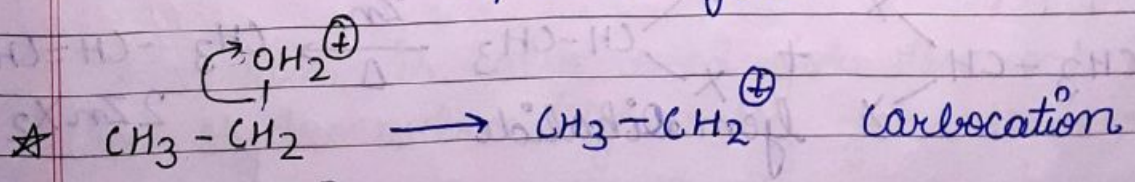 OH2⊕
☆ CH3 - CH2 ⟶ CH3 - CH2⊕ Carbocation